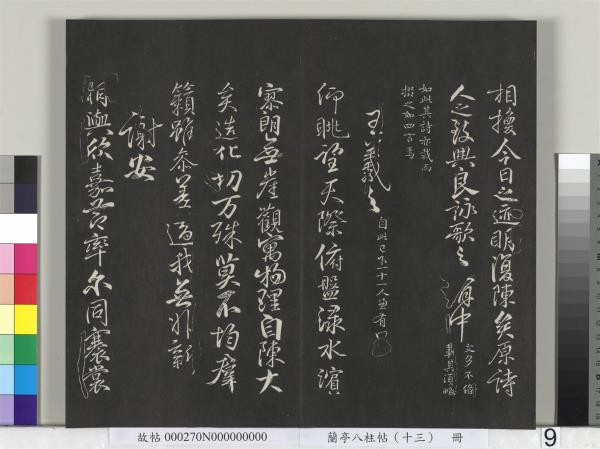 相換今日之迹明復陳矣原詩
人之致興良詠歌之有由
文多不備
載其須略
如此其詩亦裁而
掇之如四言焉
王羲之
自此已下十一人並有
仰眺望天際俯盤淥水濱
寥朗無崖觀寓物理自陳大
矣造化功万殊莫不均群
籟雖參差適我無非新
謝安
相與欣嘉節率尒同褰裳
故帖000270N000000000 蘭亭八柱帖（十三） 冊
9